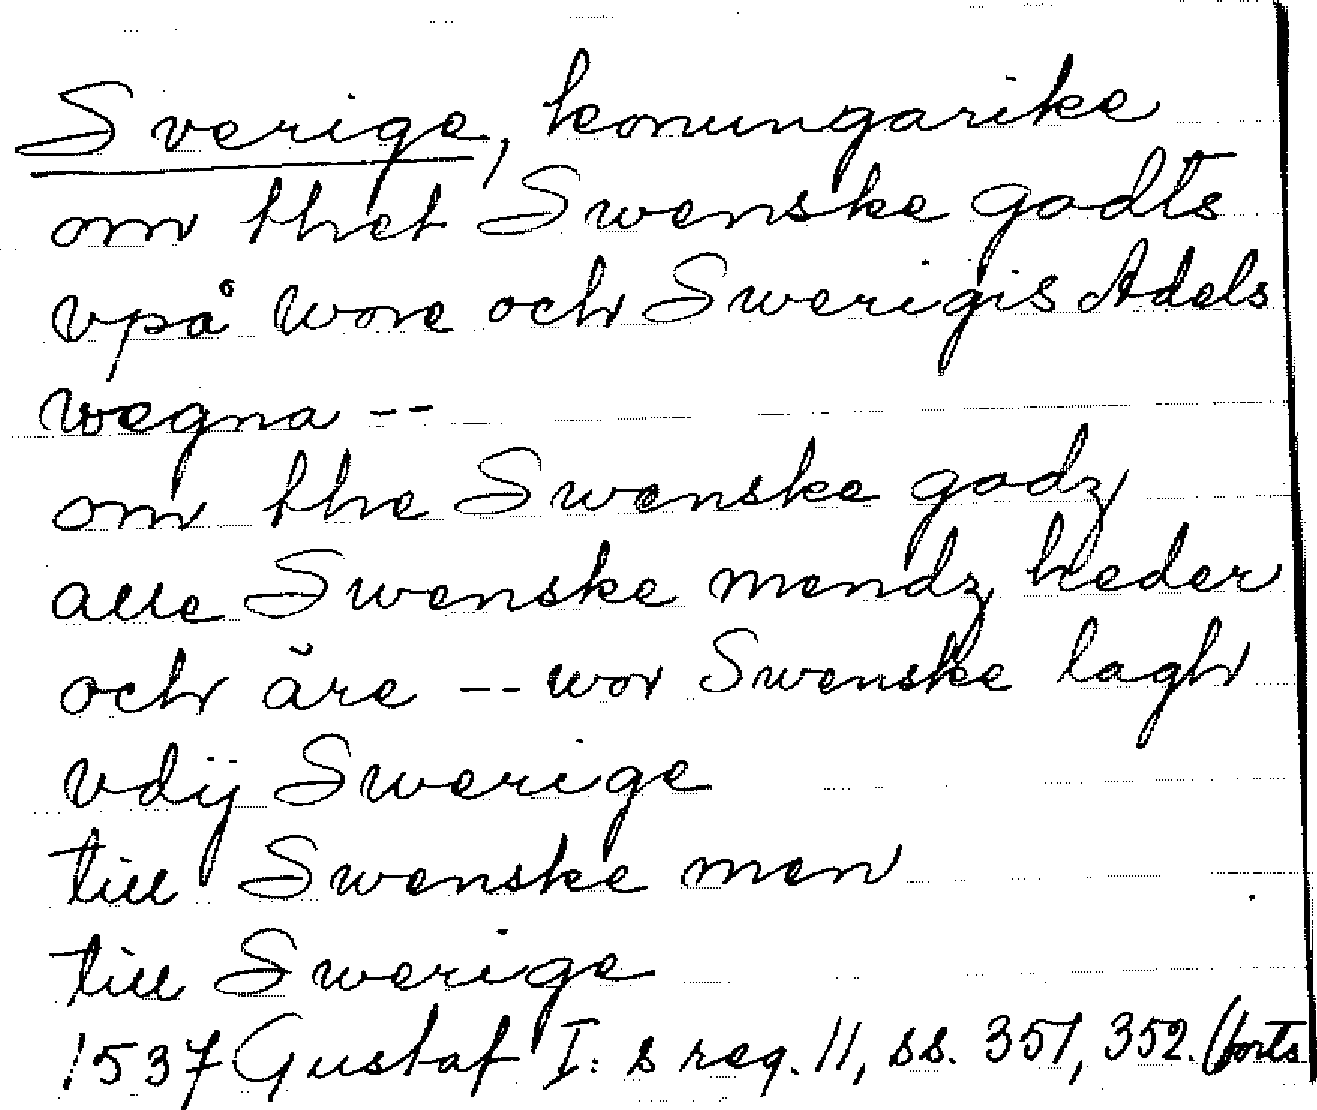 Sverige, konungarike
om thet Swenske godts
vpå wore och Swerigis Adels
wegna --
om the Swenske godz
alle Swenske mendz heder
och äre -- wor Swenske lagh
vdij Swerige
till Swenske men
till Swerige
1537 Gustaf I:s reg. 11, ss. 351, 352. (forts